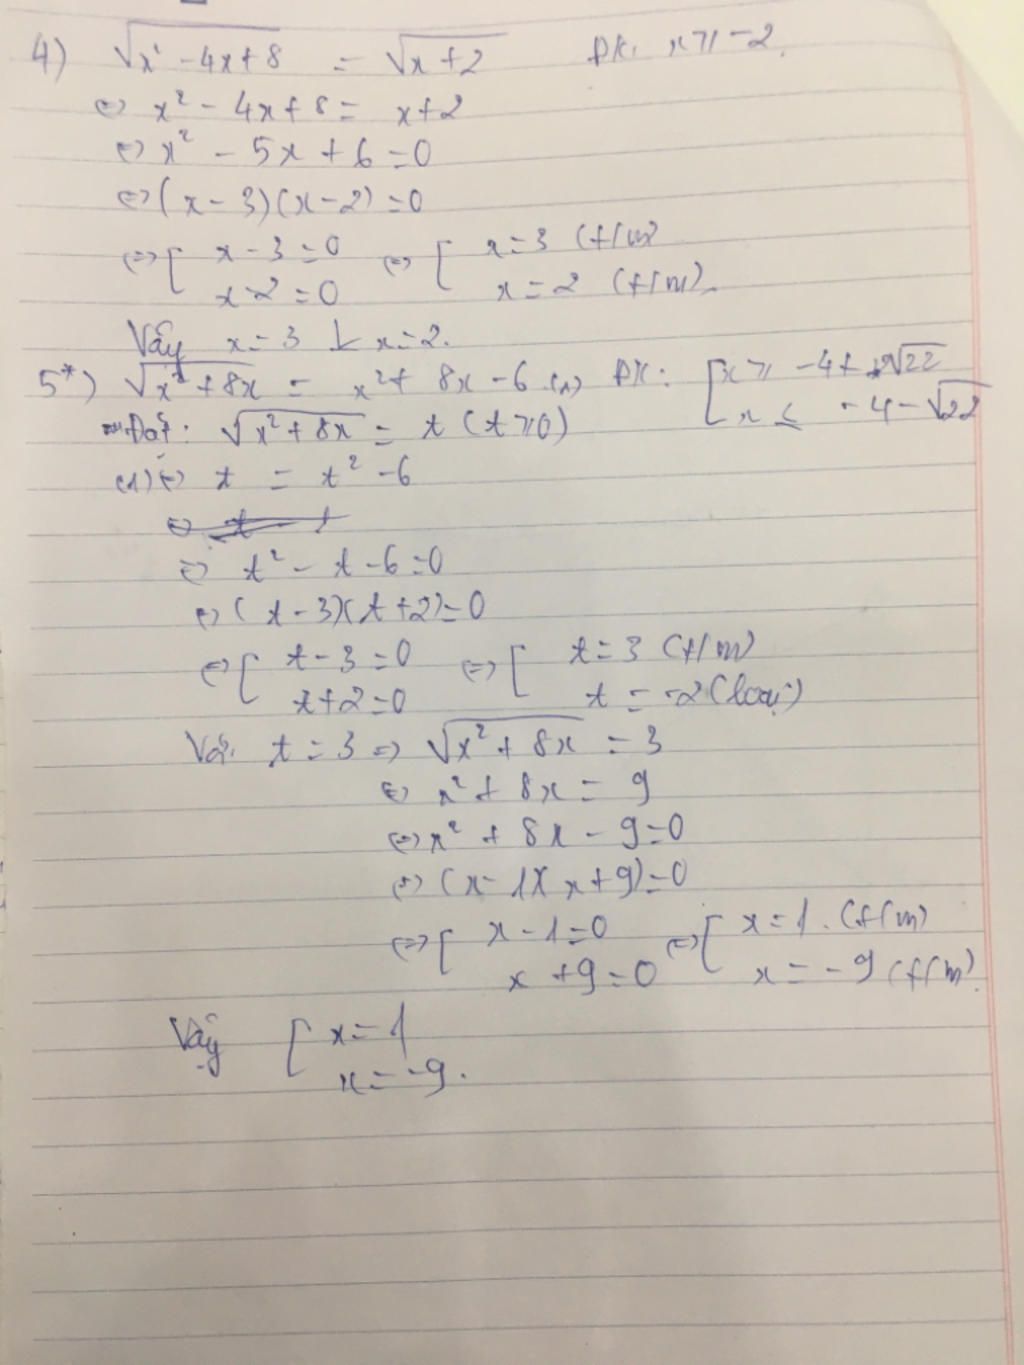 4) √x² - 4x + 8 = √x+2 ĐK: x ⩾ -2.
⇔ x² - 4x + 8 = x+2
⇔ x² - 5x + 6 = 0
⇔ (x - 3)(x - 2) = 0
⇔ [ x - 3 = 0 ⇔ [ x = 3 (t/m)
x 2 = 0 x = 2 (t/m).
Vậy x = 3 x = 2.
5*) √x² + 8x = x² + 8x - 6 (1) ĐK: [ x ⩾ -4 + √22
x ≤ -4 - √22
Đặt: √x² + 8x = t (t ⩾ 0)
(1) ⇔ t = t² - 6
⇔ t² - t - 6 = 0
⇔ (t - 3)(t + 2) = 0
⇔ [ t - 3 = 0 ⇔ [ t = 3 (t/m)
t + 2 = 0 t = -2 (loại)
Với t = 3 ⇒ √x² + 8x = 3
⇔ x² + 8x = 9
⇔ x² + 8x - 9 = 0
⇔ (x - 1)(x + 9) = 0
⇔ [ x - 1 = 0 ⇔ [ x = 1. (t/m)
x + 9 = 0 x = -9 (t/m).
Vậy [ x = 1
x = -9.